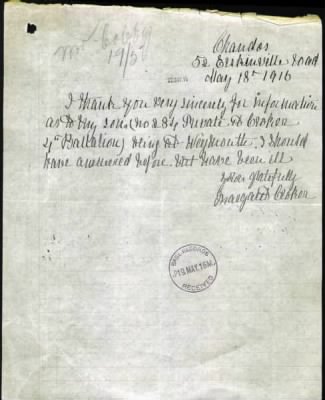 Chandos
52 Erskinville Road
May 18th 1916
19/5
I thank you very sincerely for information
as to My son (no 284 Private
4th Battalion) being at Weymouth. I should
have answered before but have been ill
yours gratefully
Margaret
BASE RECORDS
19 MAY 1916
RECEIVED